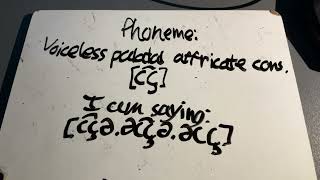 Phoneme:
Voiceless palatal affricate cons.
[c͡ç]
I am saying:
[c͡çə.əc͡çə.əcç]